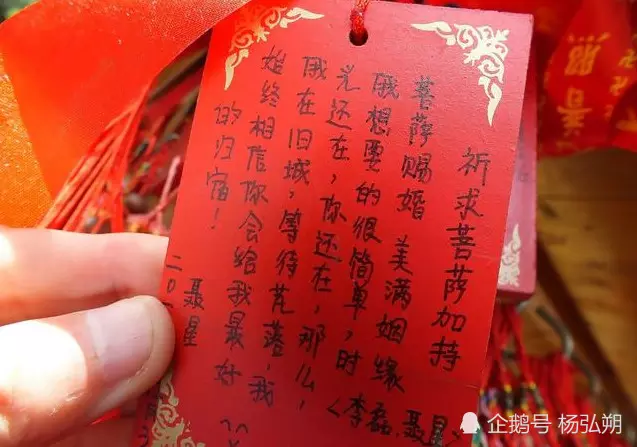 祈求菩萨加持
菩萨赐婚 美满姻缘
〈李磊.聂星
俄想要的很简单，时
光还在，你还在，那么，
俄在旧城，等待花落，我
始终相信你会给我最好
的归宿！
聂星
二〇
企鹅号 杨弘朔